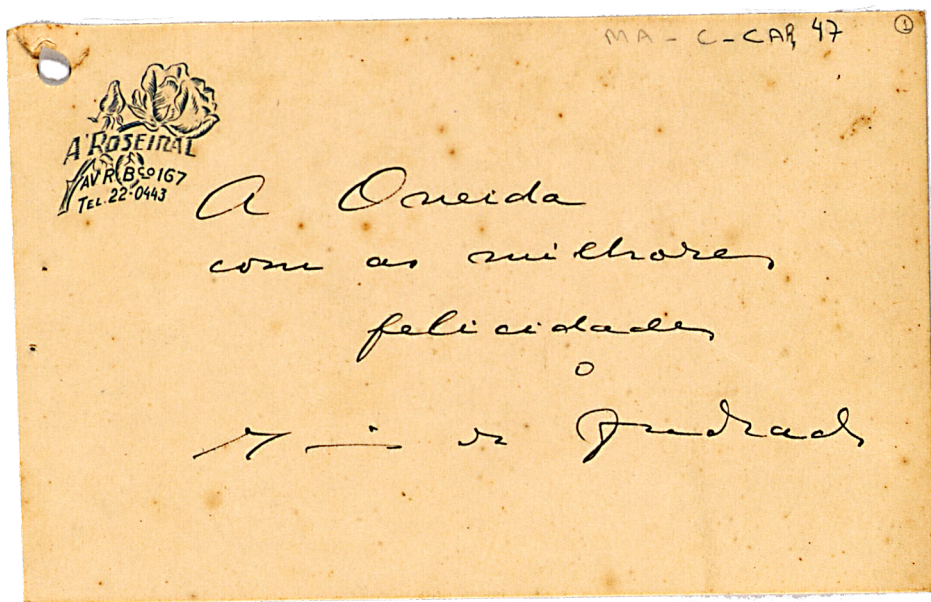 MA - C - CAR, 47
1
A ROSEIRAL
AV R. BCO 167
TEL. 22-0443
A Oneida
com as milhores
felicidades
o
Mario de Andrade